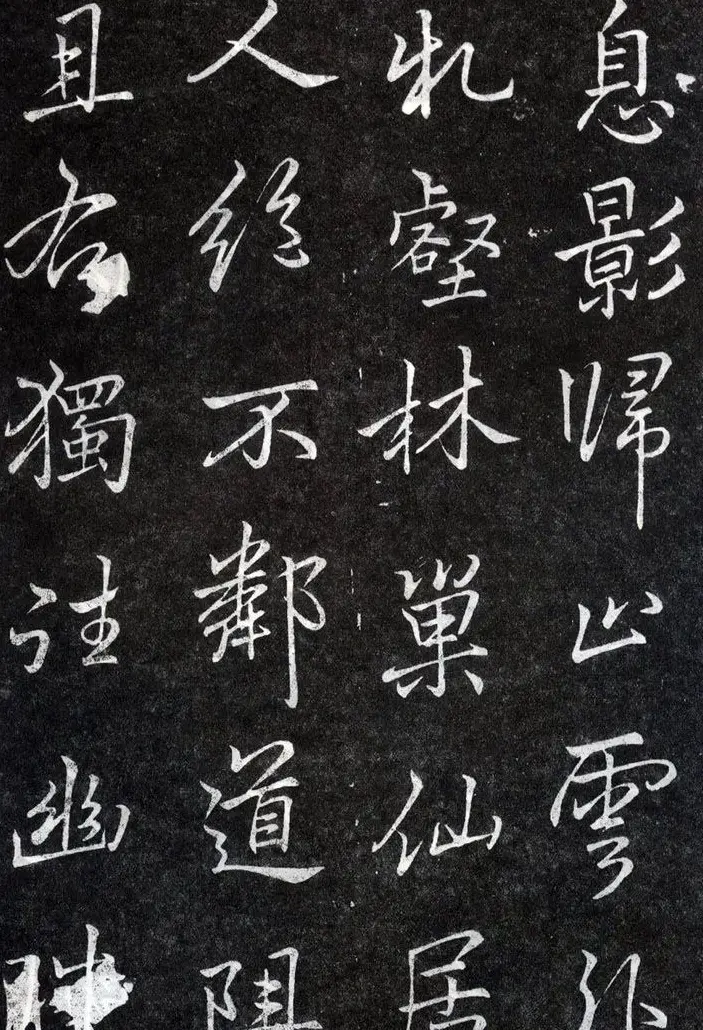 息影歸山雲卧
壑林巢仙居
人絶不鄰道阻
且右獨往幽